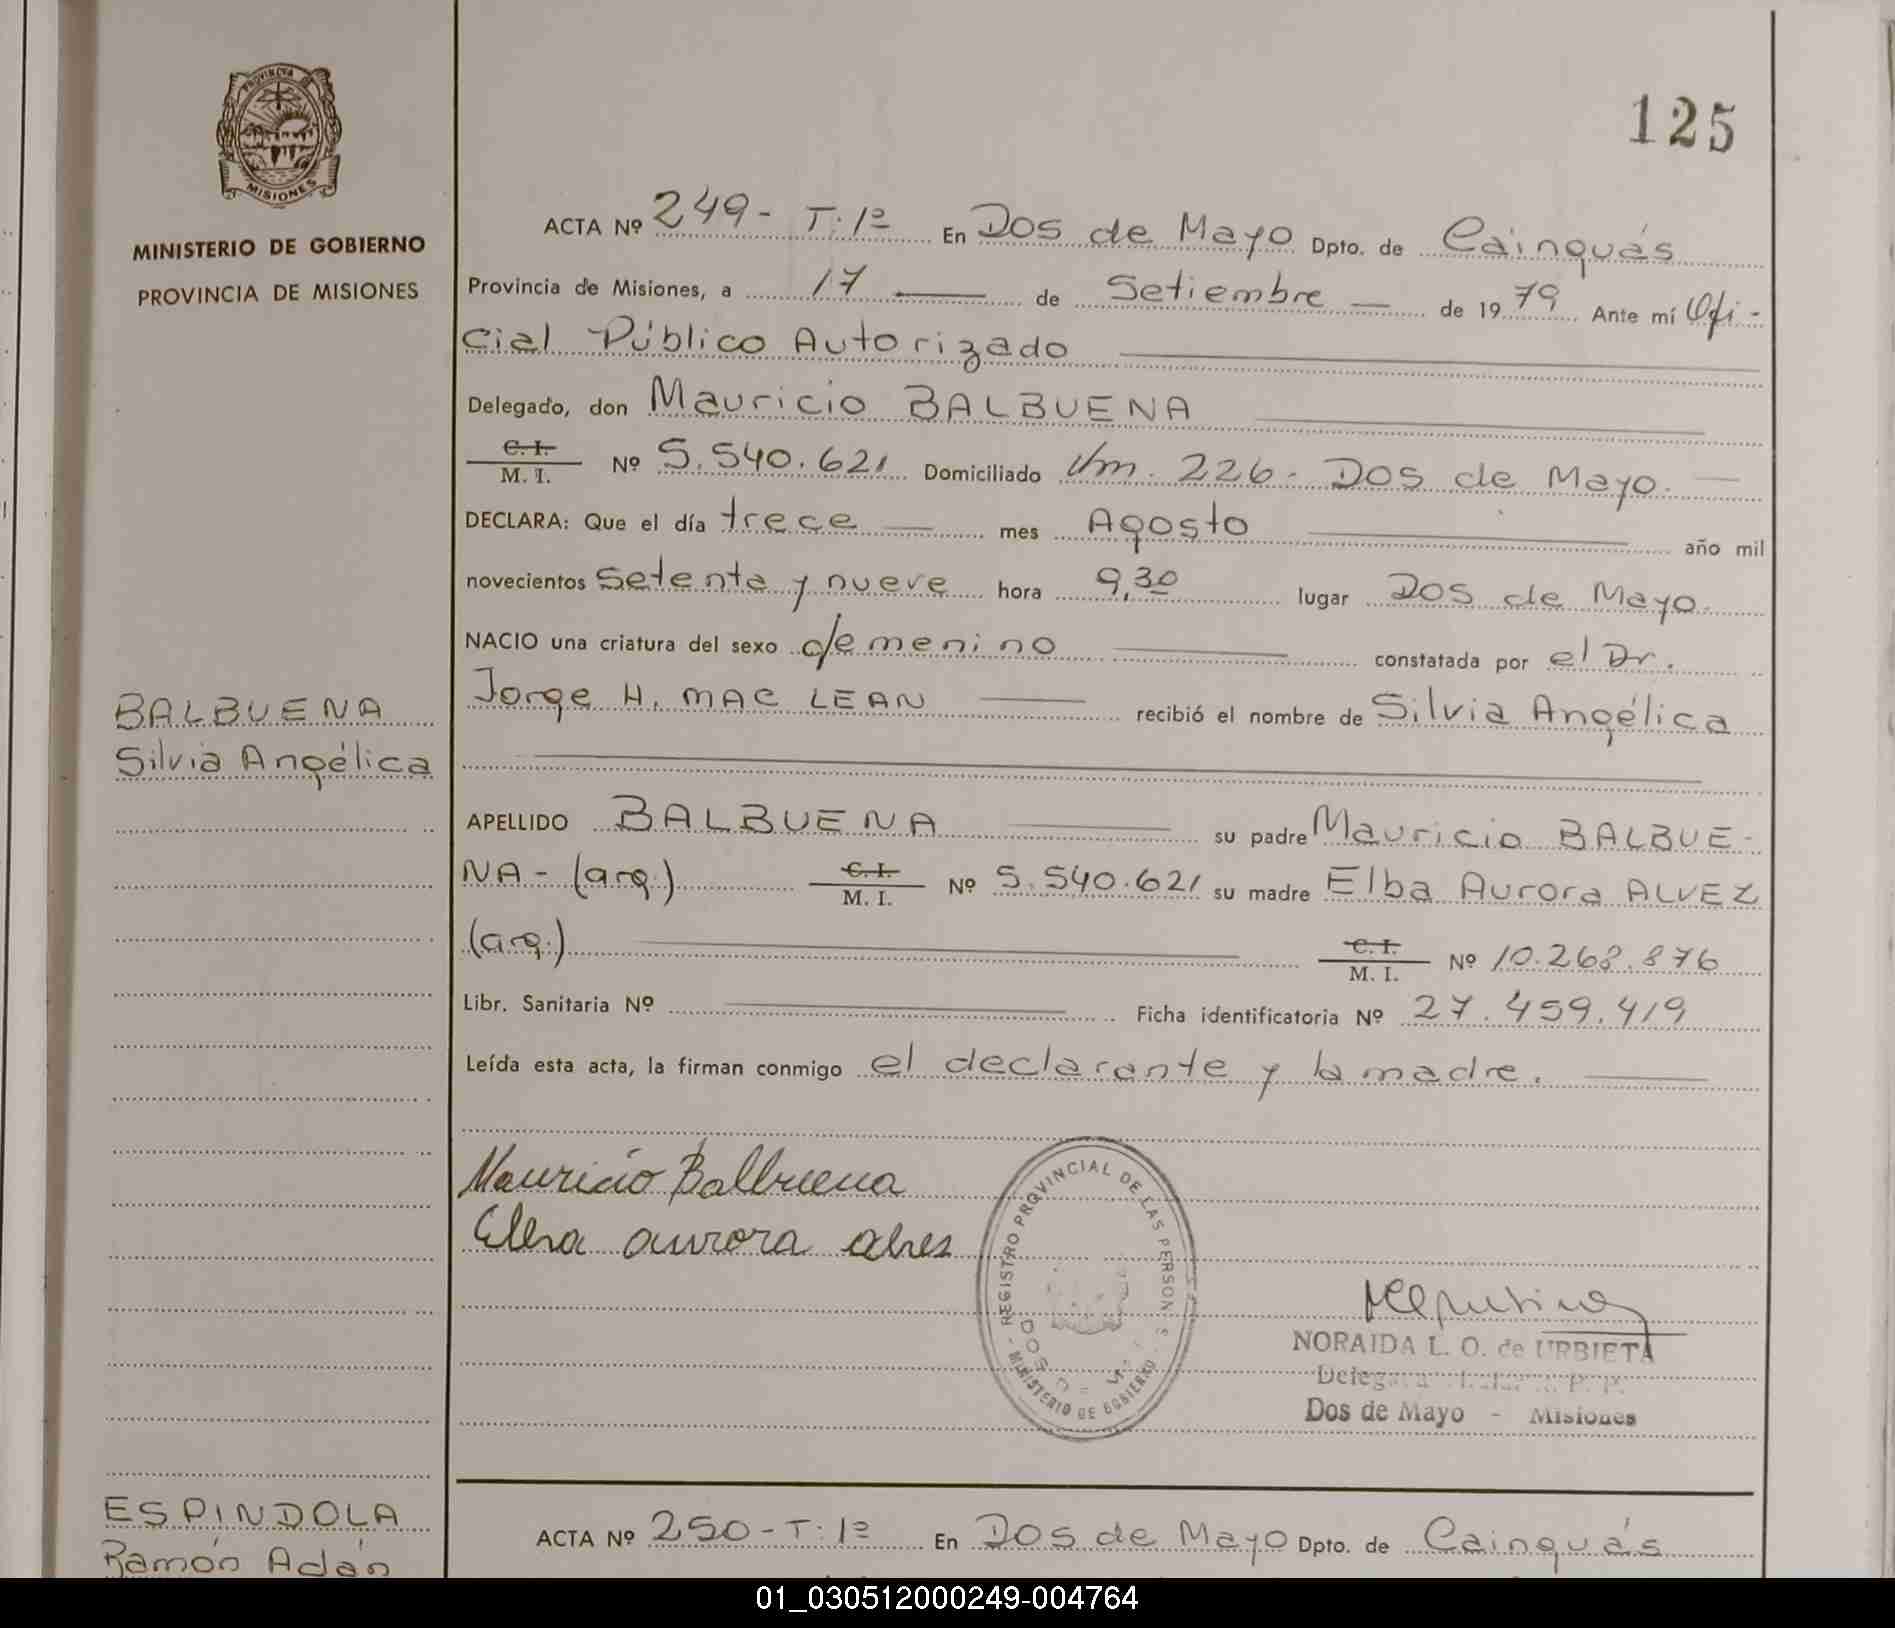 PROVINCIA DE
MISIONES
MINISTERIO DE GOBIERNO
PROVINCIA DE MISIONES
125
ACTA Nº 249- T: 1ª En Dos de Mayo Dpto. de Cainguás
Provincia de Misiones, a 17 de Setiembre de 1979 Ante mí Ofi-
cial Público Autorizado
Delegado, don Mauricio BALBUENA
C. I.
M. I. Nº 5.540.621 Domiciliado Km. 226- Dos de Mayo.
DECLARA: Que el día trece mes Agosto año mil
novecientos setenta y nueve hora 9,30 lugar Dos de Mayo.
NACIO una criatura del sexo femenino constatada por el Dr.
Jorge H. MAC LEAN recibió el nombre de Silvia Angélica
BALBUENA
Silvia Angélica
APELLIDO BALBUENA su padre Mauricio BALBUE-
NA- (arg.) C. I. M. I. Nº 5.540.621 su madre Elba Aurora ALVEZ
(arg.) C. I. M. I. Nº 10.268.876
Libr. Sanitaria Nº Ficha identificatoria Nº 27.459.419
Leída esta acta, la firman conmigo el declarante y la madre.
Mauricio Balbuena
Elba aurora alves
REGISTRO PROVINCIAL DE LAS PERSONAS
MINISTERIO DE GOBIERNO
NORAIDA L. O. de URBIETA
Dos de Mayo - Misiones
ESPINDOLA
Ramón Adán
ACTA Nº 250-T:1ª En Dos de Mayo Dpto. de Cainguás
01_030512000249-004764